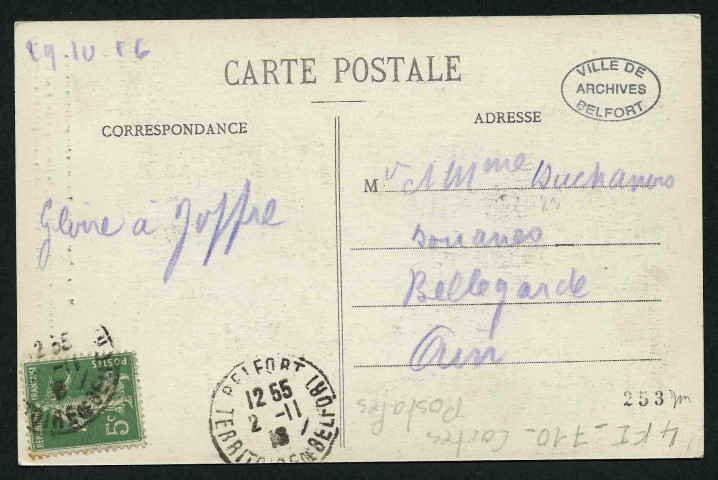 29.IV.16
CARTE POSTALE
VILLE DE
ARCHIVES
BELFORT
CORRESPONDANCE
ADRESSE
Gloire à Joffre
M r & Mme Duchanois
Douanes
Bellegarde
Ain
12 55
-11
REPUBLIQUE FRANÇAISE
POSTES
5c
BELFORT
12 55
2 -11
TERRITOIRE DE BELFORT
253
4 FI - 710 - Cartes
Postales